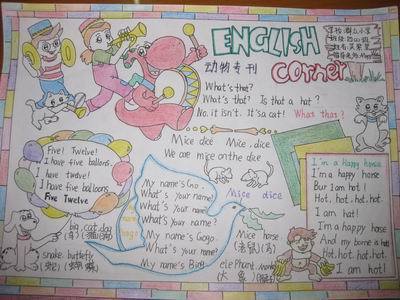 ENGLISH
corner
动物专刊
What's that?
What's that? Is that a hat?
No. it isn't. It's a cat! What's that?
Mice dice Mice. dice
We are mice on the dice
Mice dice
Five! Twelve!
I have five balloons.
I have twelve!
I have five balloons
Five Twelve
My name's Go.
What's your name?
What's your name?
What's your name?
My name's Gogo.
What's your name?
My name's Bing
I'm a Happy horse
I'm a happy horse
But I am hot!
Hot. hot. hot. hot.
I am hat!
I'm a happy horse
And my bonne is hot
Hot. hot. hot. hot.
I am hot!
big cat dog
snake butterfly
(蛇) (蝴蝶)
Mice horse
(老鼠) (马)
elephant
大象